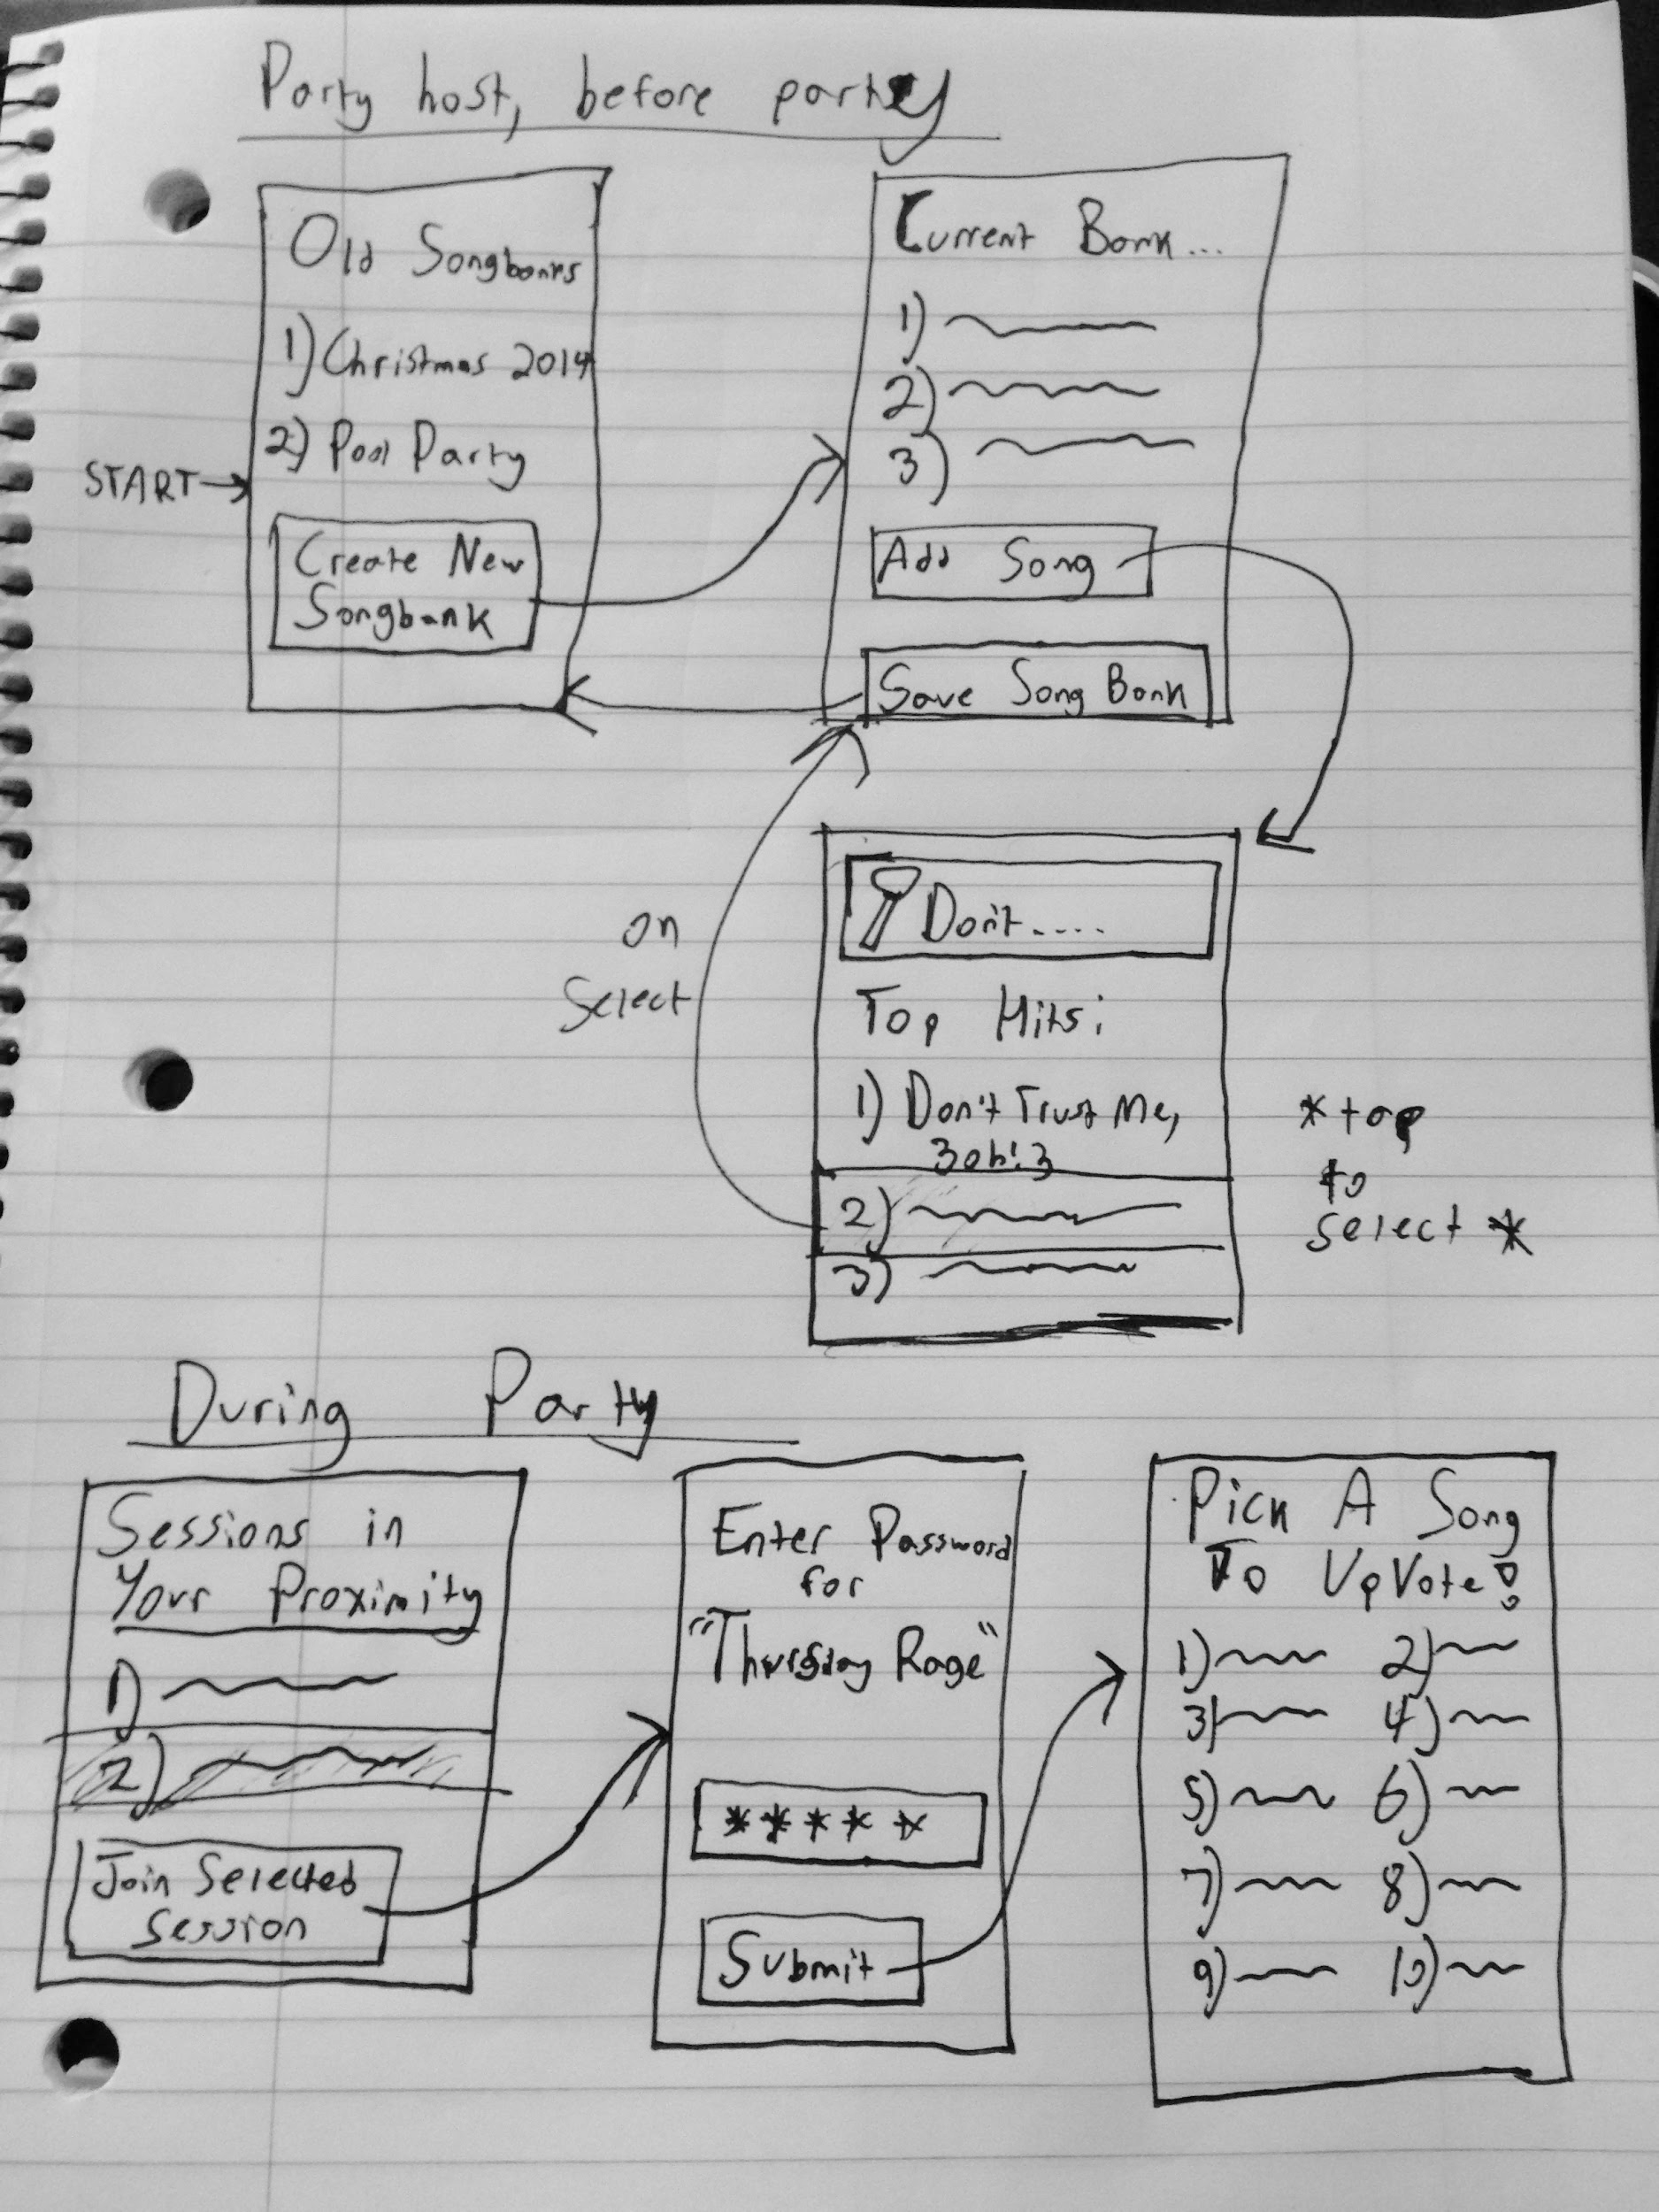 Party host, before party
START
Old Songbanks
1) Christmas 2014
2) Pool Party
Create New
Songbank
Current Bank...
1)
2)
3)
Add Song
Save Song Bank
on
select
Don't....
Top Hits:
1) Don't Trust Me,
3oh!3
2)
3)
*tap
to
select *
During Party
Sessions in
Your Proximity
1)
2)
Join Selected
Session
Enter Password
for
"Thursday Rage"
*****
Submit
Pick A Song
To UpVote!
1) 2)
3) 4)
5) 6)
7) 8)
9) 10)